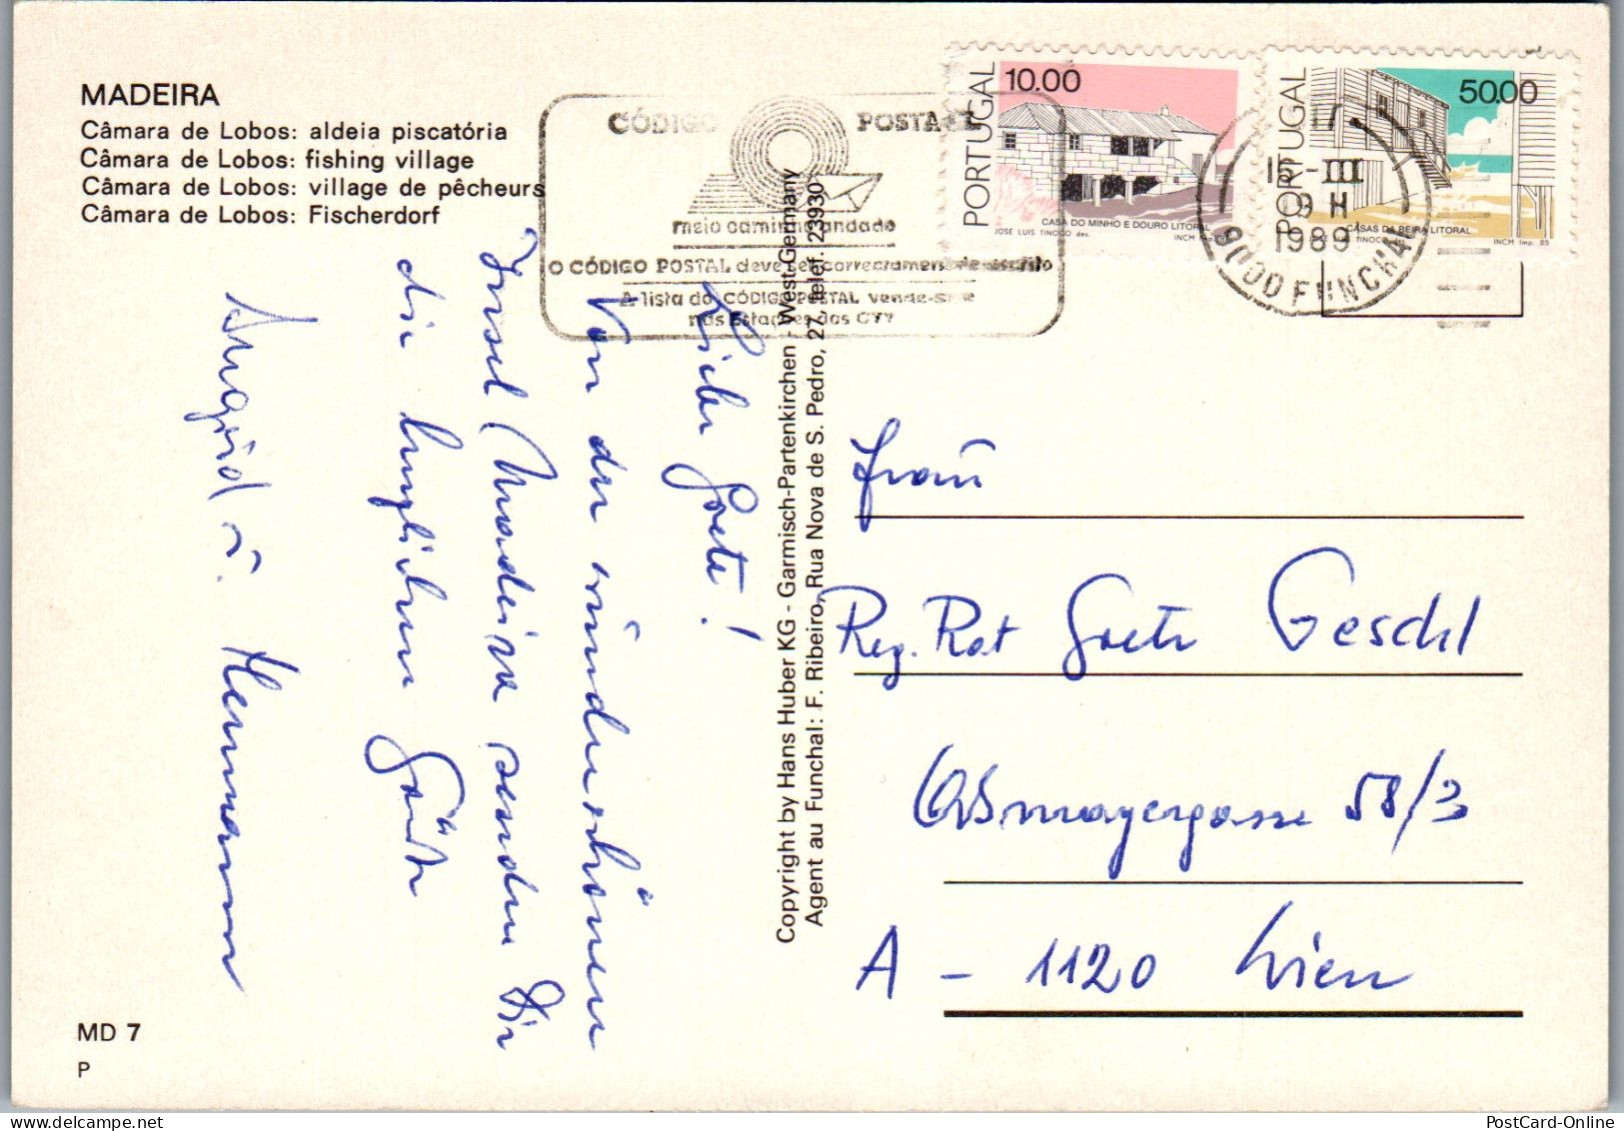 MADEIRA
Câmara de Lobos: aldeia piscatória
Câmara de Lobos: fishing village
Câmara de Lobos: village de pêcheurs
Câmara de Lobos: Fischerdorf
CÓDIGO POSTAL
meio caminho andado
O CÓDIGO POSTAL deve ser correctamente escrito
A lista do CÓDIGO POSTAL vende-se
nas Estações dos CTT
PORTUGAL
10.00
CASA DO MINHO E DOURO LITORAL
JOSÉ LUIS TINOCO des. INCM Imp.
PORTUGAL
50.00
CASAS DA BEIRA LITORAL
TINOCO INCM Imp. 85
17.
15-III
9 H
1989
9000 FUNCHAL
Liebe Grete!
Von der wunderschönen
Insel Madeira senden Dir
die herzlichen Grüße
Ingrid u. Hermann
Copyright by Hans Huber KG - Garmisch-Partenkirchen - West-Germany
Agent au Funchal: F. Ribeiro, Rua Nova de S. Pedro, 27, Telef. 23930
Frau
Reg. Rat Grete Geschl
Aßmayergasse 58/3
A - 1120 Wien
MD 7
P
PostCard-Online
delcampe.net